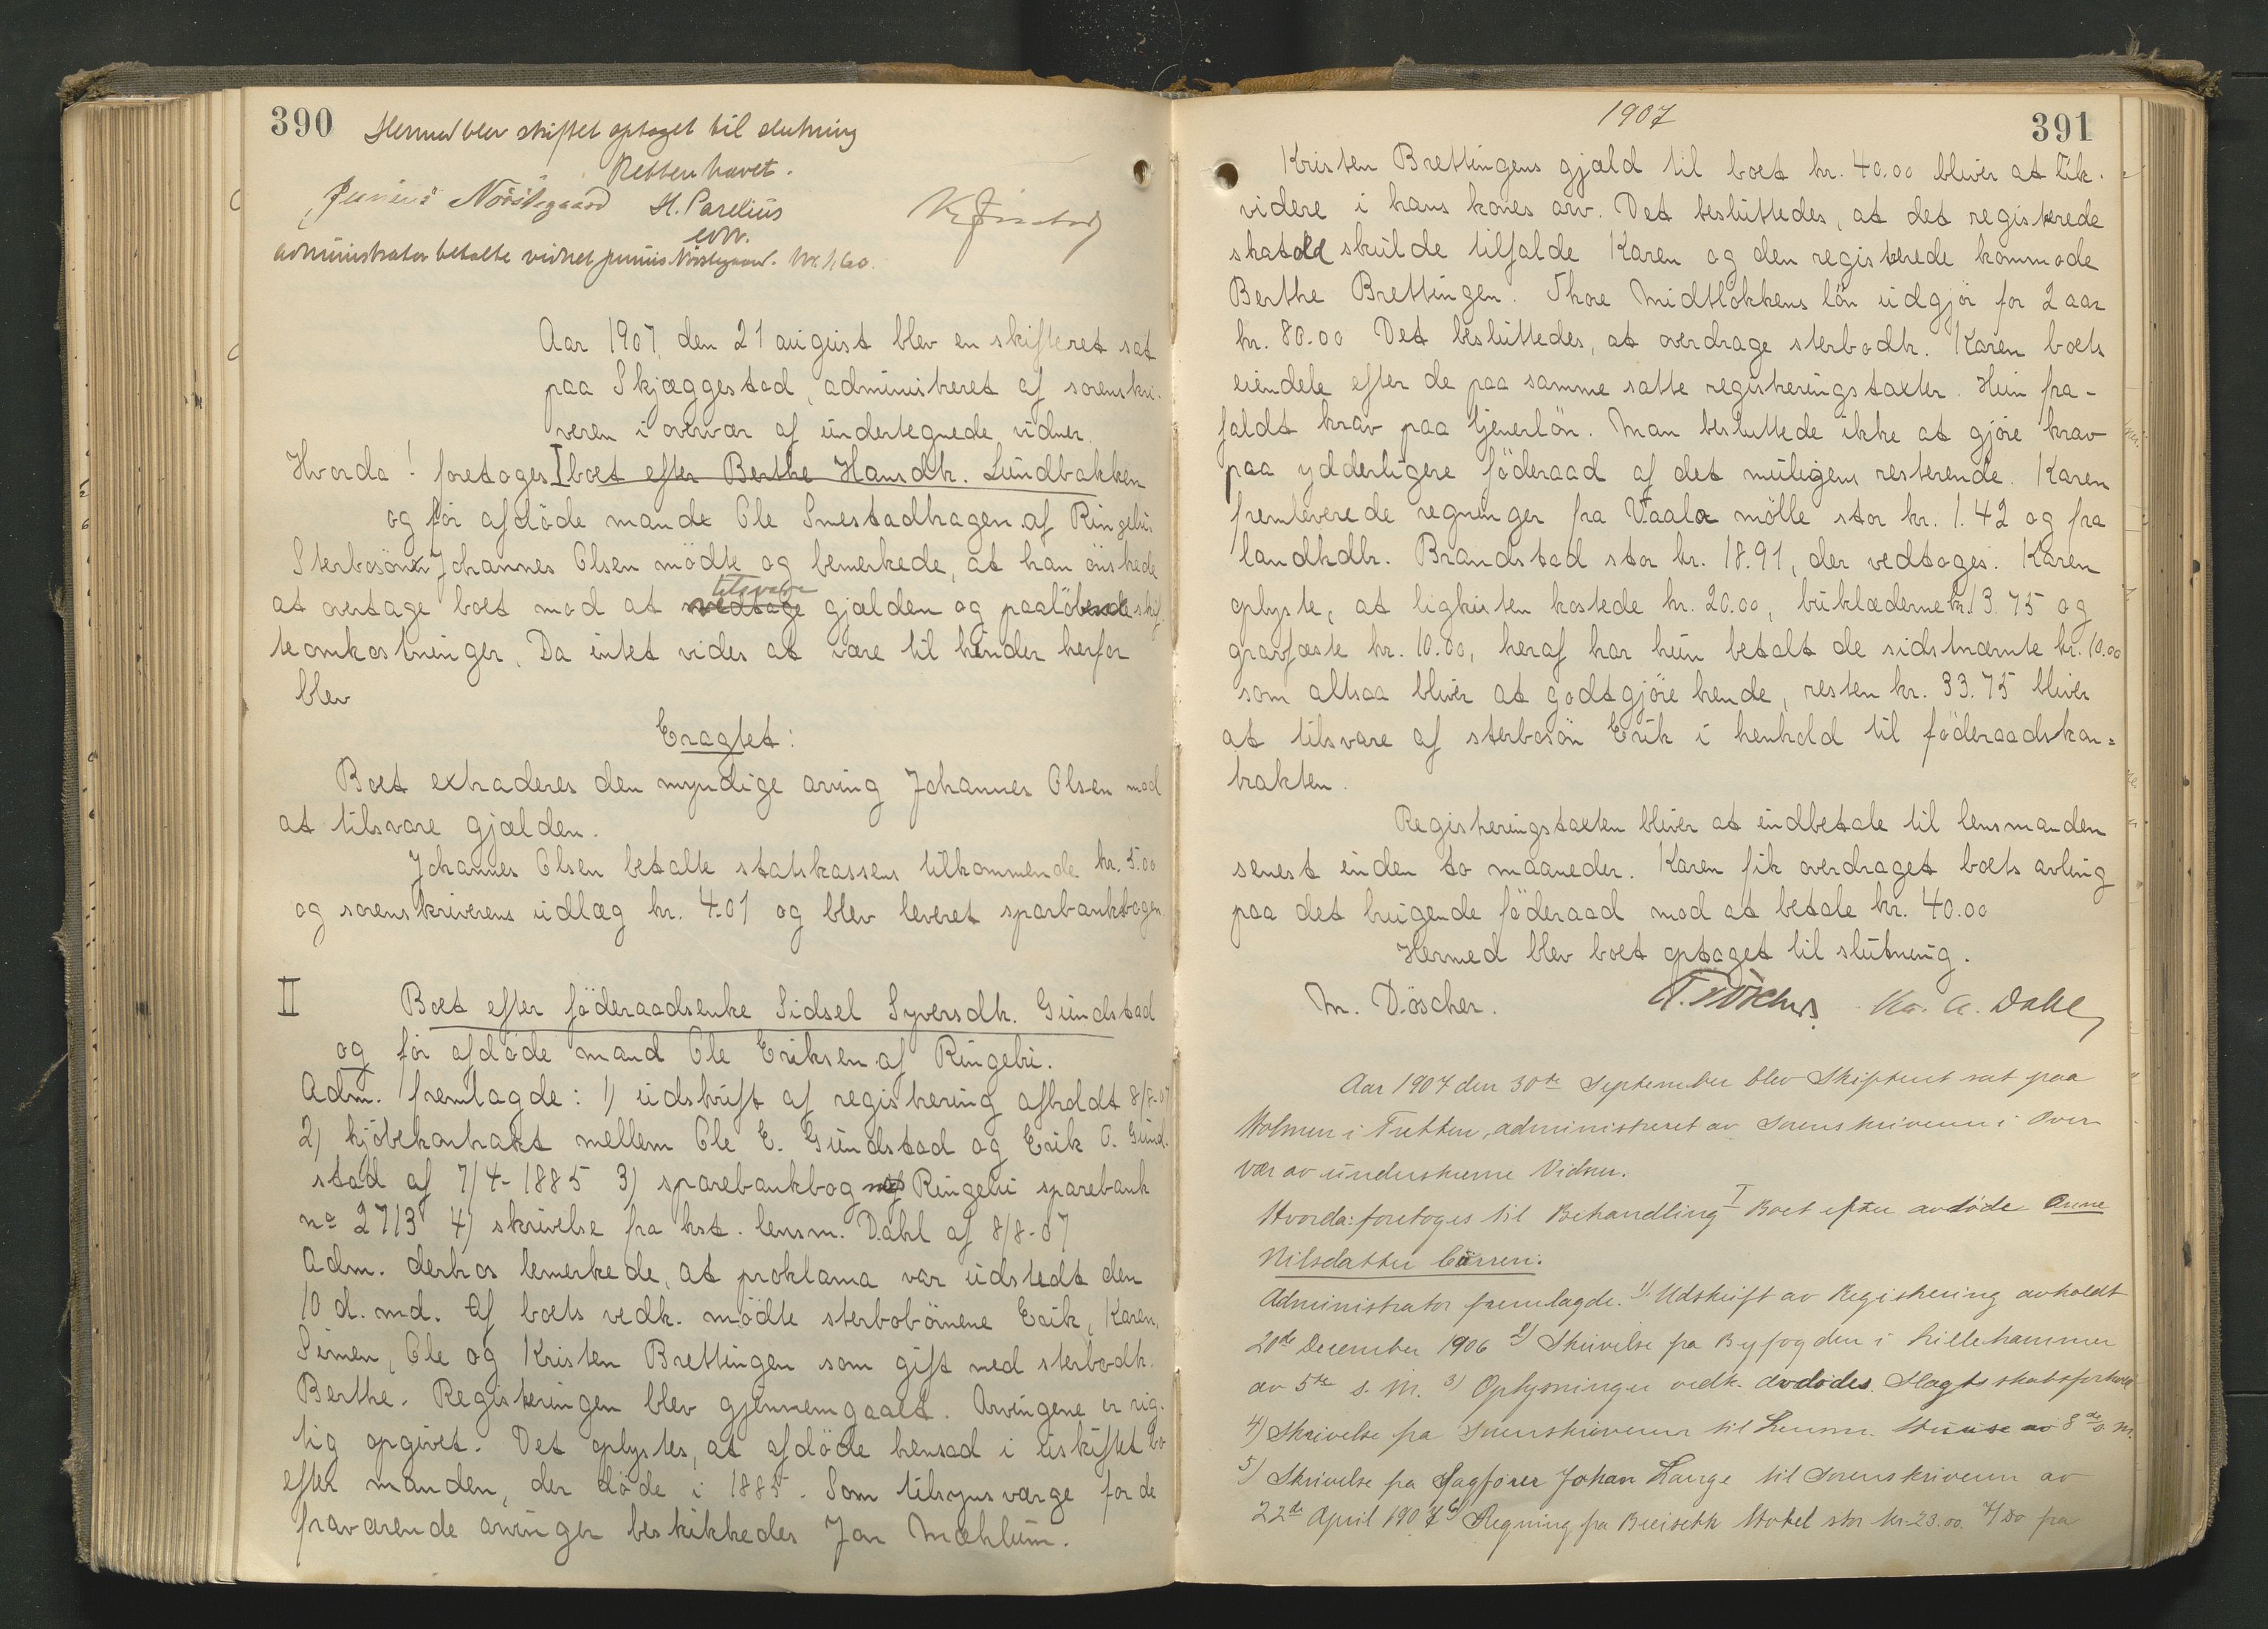 390
Hermed blev skiftet optaget til slutning
Retten hævet.
Junius Nörstegaard H. Parelius
edv.
administrator betalte vidnet Junius Nörstegaard. kr. 1.60.
Aar 1907, den 21 august blev en skifteret sat
paa Skjæggestad, administreret af sorenskri-
veren i overvær af undertegnede vidner.
Hvorda! foretoges I boet efter Berthe Hansdtr. Lundbakken
og før afdöde mand Ole Smestadhagen af Ringebu
Sterbosönn Johannes Olsen mödte og bemerkede, at han önskede
at overtage boet mod at vedtage tilsvare gjælden og paalöbende skif-
teomkostninger. Da intet vides at være til hinder herfor
blev
Eragtet:
Boet extraderes den myndige arving Johannes Olsen mod
at tilsvare gjælden.
Johannes Olsen betalte statskassens tilkommende kr. 5.00
og sorenskriverens udlæg kr. 4.01 og blev leveret sparbankbogen.
II Boet efter föderaadsenke Sidsel Syversdtr. Gundstad
og før afdöde mand Ole Eriksen af Ringebu.
Adm. fremlagde: 1) udskrift af registrering afholdt 8/8-07
2) kjöbekontrakt mellem Ole E. Gundstad og Erik O. Gund-
stad af 7/4-1885 3) sparebankbog Ringebu sparebank
no 2713 4) skrivelse fra kst. lensm. Dahl af 8/8-07
Adm. derhos bemerkede, at proklama var udstedt den
10 d. md. Af boets vedk. mödte sterbobörnene Erik, Karen,
Simen, Ole og Kristen Brettingen som gift med sterbodtr.
Berthe. Registreringen blev gjennemgaaet. Arvingene er rig-
tig opgivet. Det oplystes, at afdöde hensad i uskiftet bo
efter manden, der döde i 1885. Som tilsynsværge for de
fraværende arvinger beskikkedes Jon Mæhlum.
1907
391
Kristen Brettingens gjæld til boet kr. 40.00 bliver at lik-
videre i hans kones arv. Det besluttedes, at det registrerede
skatoll skulde tilfalde Karen og den registrerede kommode
Berthe Brettingen. Thore Midtlökkens lön udgjör for 2 aar
kr. 80.00 Det besluttedes, at overdrage sterbodtr. Karen boets
eiendele efter de paa samme satte registreringstaxter. Hun fra-
faldt krav paa tjenerlön. Man besluttede ikke at gjöre krav
paa ydderligere föderaad af det muligens resterende. Karen
fremleverede regninger fra Vaala mölle stor kr. 1.42 og fra
landhdlr. Brandstad stor kr. 18.91, der vedtoges. Karen
oplyste, at ligkisten kostede kr. 20.00, liklæderne kr. 13.75 og
gravfæste kr. 10.00, heraf har hun betalt de sidstnævnte kr. 10.00
som altsaa bliver at godtgjöre hende, resten kr. 33.75 bliver
at tilsvare af sterbosön Erik i henhold til föderaadskon=
trakten.
Registreringstaxten bliver at indbetale til lensmanden
senest inden to maaneder. Karen fik overdraget boets avling
paa det bruigende föderaad mod at betale kr. 40.00
Hermed blev boet optaget til slutning.
M. Döscher. Kr. A. Dahl
Aar 1907 den 30te September blev Skifteret sat paa
Holmen i Tretten, administreret av Sorenskriveren i Over-
vær av underskrevne Vidner.
Hvorda: foretoges til Behandling I Boet efter avdöde Anne
Nilsdatter
Administrator fremlagde. 1) Udskrift av Registrering avholdt
20de December 1906 2) Skrivelse fra Byfogden i Lillehammer
av 5te s. M. 3) Oplysninger vedk. avdödes Slagtsskabsforhold
4) Skrivelse fra Sorenskriveren til Lensm. av 8de s. M.
5) Skrivelse fra Sagförer Johan Lange til Sorenskriveren av
22de April 1907 6) Regning fra Breiseth Hotel stor kr. 23.00. 7) Do fra